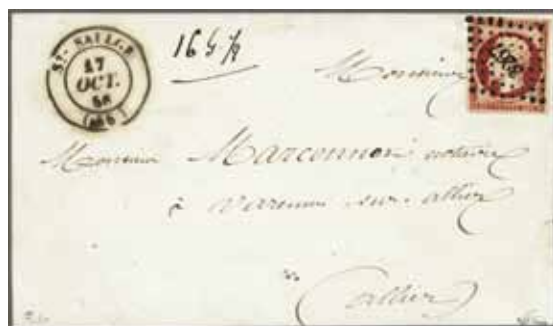 ST- SAULGE
17
OCT.
56
16 G ½
Monsieur
Monsieur Marconnot notaire
à Varennes sur allier
(allier)